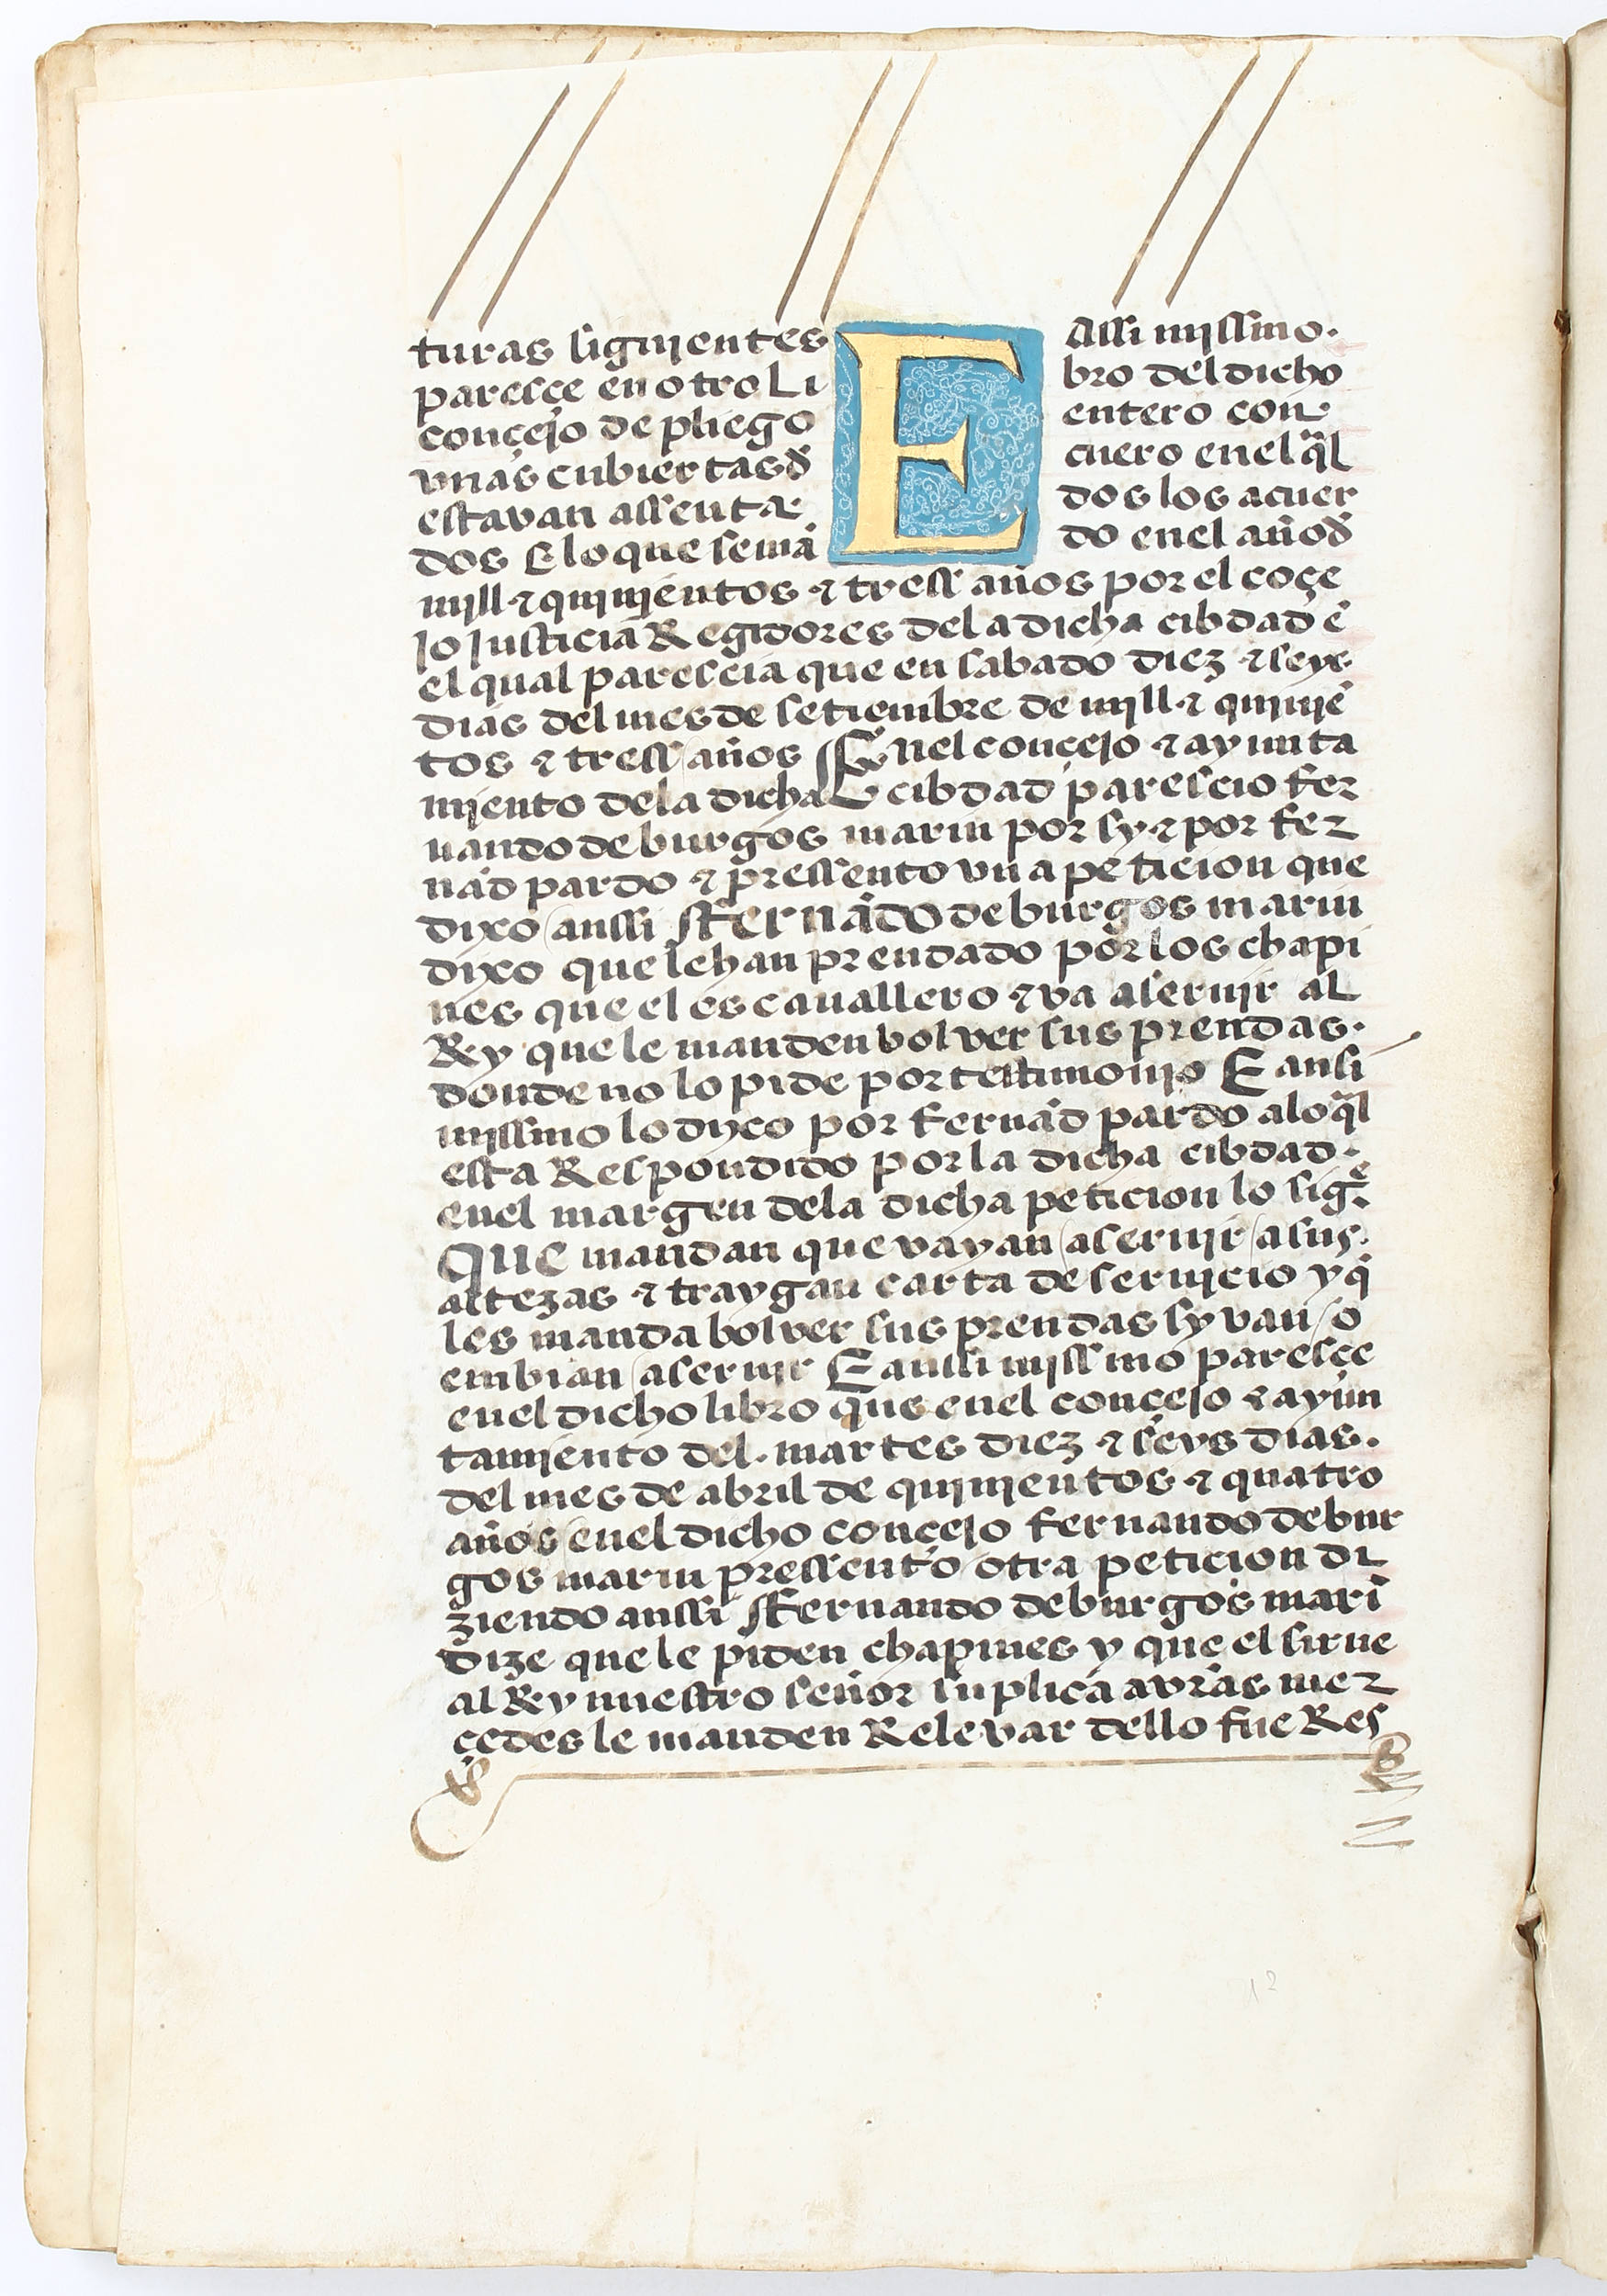 turas siguientes E assi missmo.
paresce en otro Li bro del dicho
conçejo de pliego entero con
vnas cubiertas đ cuero en el q̃l
estavan assenta dos los acuer
dos E lo que se mā do en el año đ
mill ⁊ quinientos ⁊ tress años por el cōçe
jo Justicia Regidores dela dicha cibdad ē
el qual parescia que en sabado diez ⁊ seys
dias del mes de setiembre de mill ⁊ quiniē
tos ⁊ tress años En el concejo ⁊ ayunta
miento dela dicha cibdad parescio fer
nando de burgos marin por sy ⁊ por fer
nād pardo ⁊ pressento vna peticion que
dixo anssi ffernādo de burgos marin
dixo que le han prendado por los chapi
nes que el es cavallero ⁊ va a seruir al
Rey que le manden bolver sus prendas.
donde no lo pide por testimonio E ansi
missmo lo dixo por fernād pardo alo q̃l
esta Respondido por la dicha cibdad.
en el margen dela dicha peticion lo sigᵉ
Que mandan que vayan a seruir a sus.
altezas ⁊ traygan carta de seruicio y q̄
les manda bolver sus prendas sy van o
embian a seruir E anssi missmo paresçe
en el dicho libro que en el conçejo ⁊ ayun
tamiento del martes diez ⁊ seys dias.
del mes de abril de quinientos ⁊ quatro
años en el dicho conçejo fernando de bur
gos marin pressento otra peticion di
ziendo anssi ffernando de burgos marī
dize que le piden chapines y que el sirue
al Rey nuestro señor suplica a vrās mer
çedes le manden Relevar dello fue Res